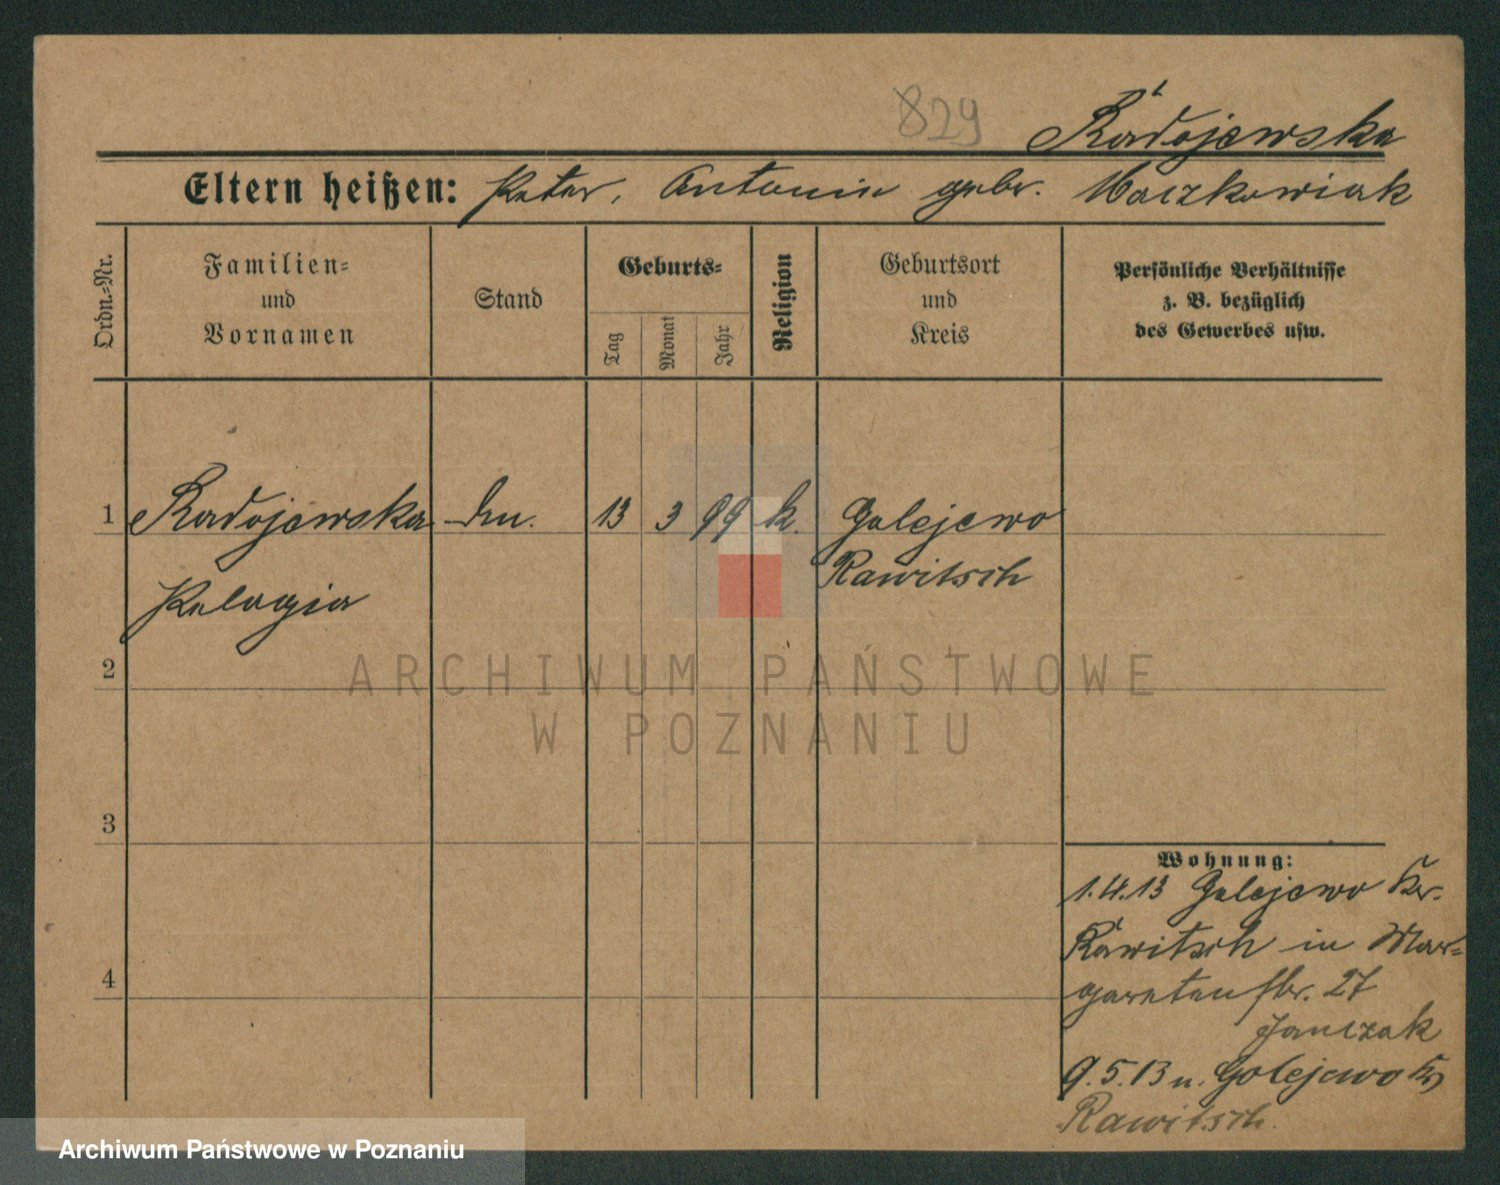 829
Radojewska
Eltern heißen: Peter, Antonie gebr. Maczkowiak
Ordn.-Nr.
Familien-
und
Vornamen
Stand
Geburts-
Tag
Monat
Jahr
Religion
Geburtsort
und
Kreis
Persönliche Verhältnisse
z. B. bezüglich
des Gewerbes usw.
1 Radojewska 13 3 99 k. Golejewo
Rawitsch
Pelagia
2
3
4
Wohnung:
1.4.13 Golejewo Kr.
Rawitsch in Mar-
garetenstr. 27
Janczak
9.5.13 n. Golejewo Kr
Rawitsch.
ARCHIWUM PAŃSTWOWE
W POZNANIU
Archiwum Państwowe w Poznaniu